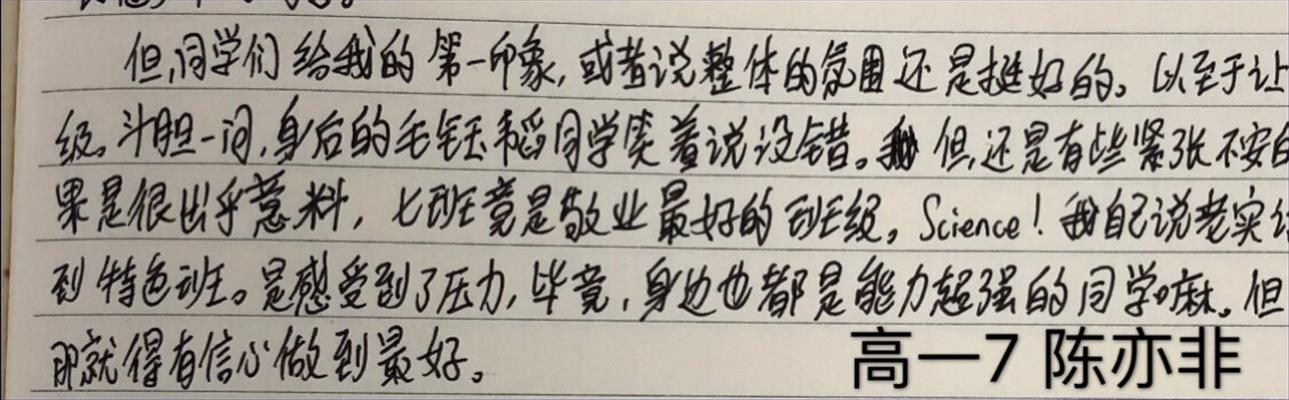 但,同学们给我的第一印象,或者说整体的氛围还是挺好的。以至于让
级。斗胆一问,身后的毛钰稻同学笑着说没错。但,还是有些紧张不安的
果是很出乎意料,七班竟是敬业最好的班级。Science!我自己说老实话
到特色班。是感受到了压力,毕竟,身边也都是能力超强的同学嘛。但
那就得有信心做到最好。
高一7 陈亦非